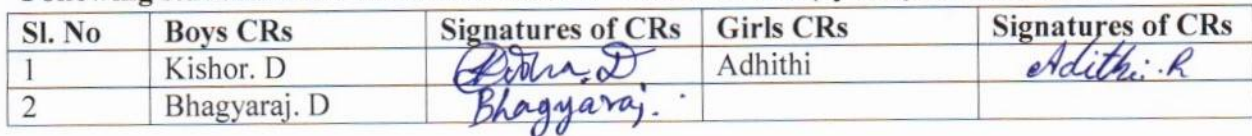 Sl. No Boys CRs Signatures of CRs Girls CRs Signatures of CRs
1 Kishor. D Adhithi Adithi. R
2 Bhagyaraj. D Bhagyaraj.